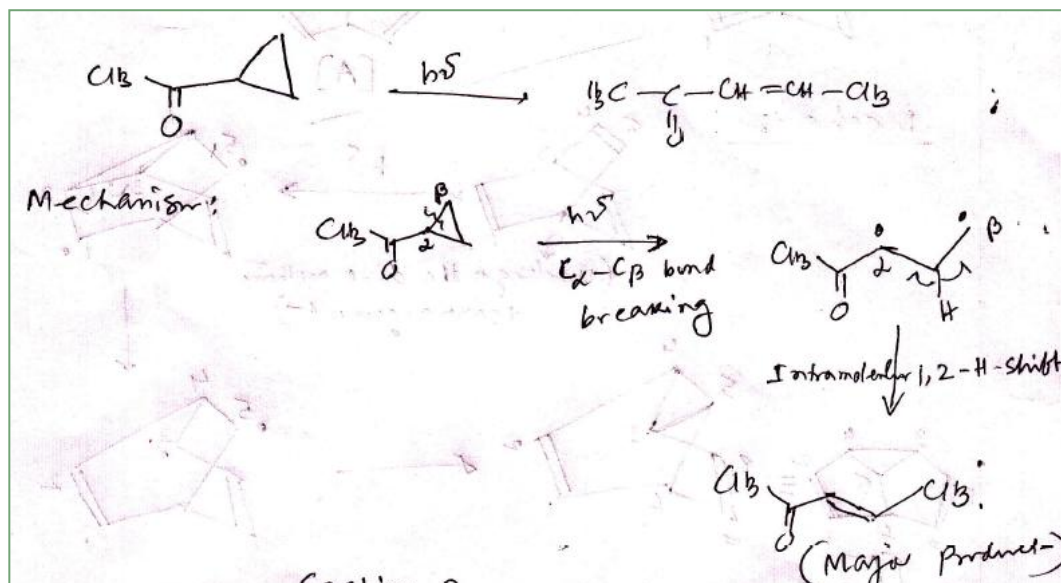 CH3 O hν H3C - C - CH = CH - CH3 ;
O
Mechanism:
CH3 O 2 β hν CH3 O 2 H β
Cα-Cβ bond
breaking
Intramolecular 1,2-H-shift
CH3 O CH3
(Major Product)